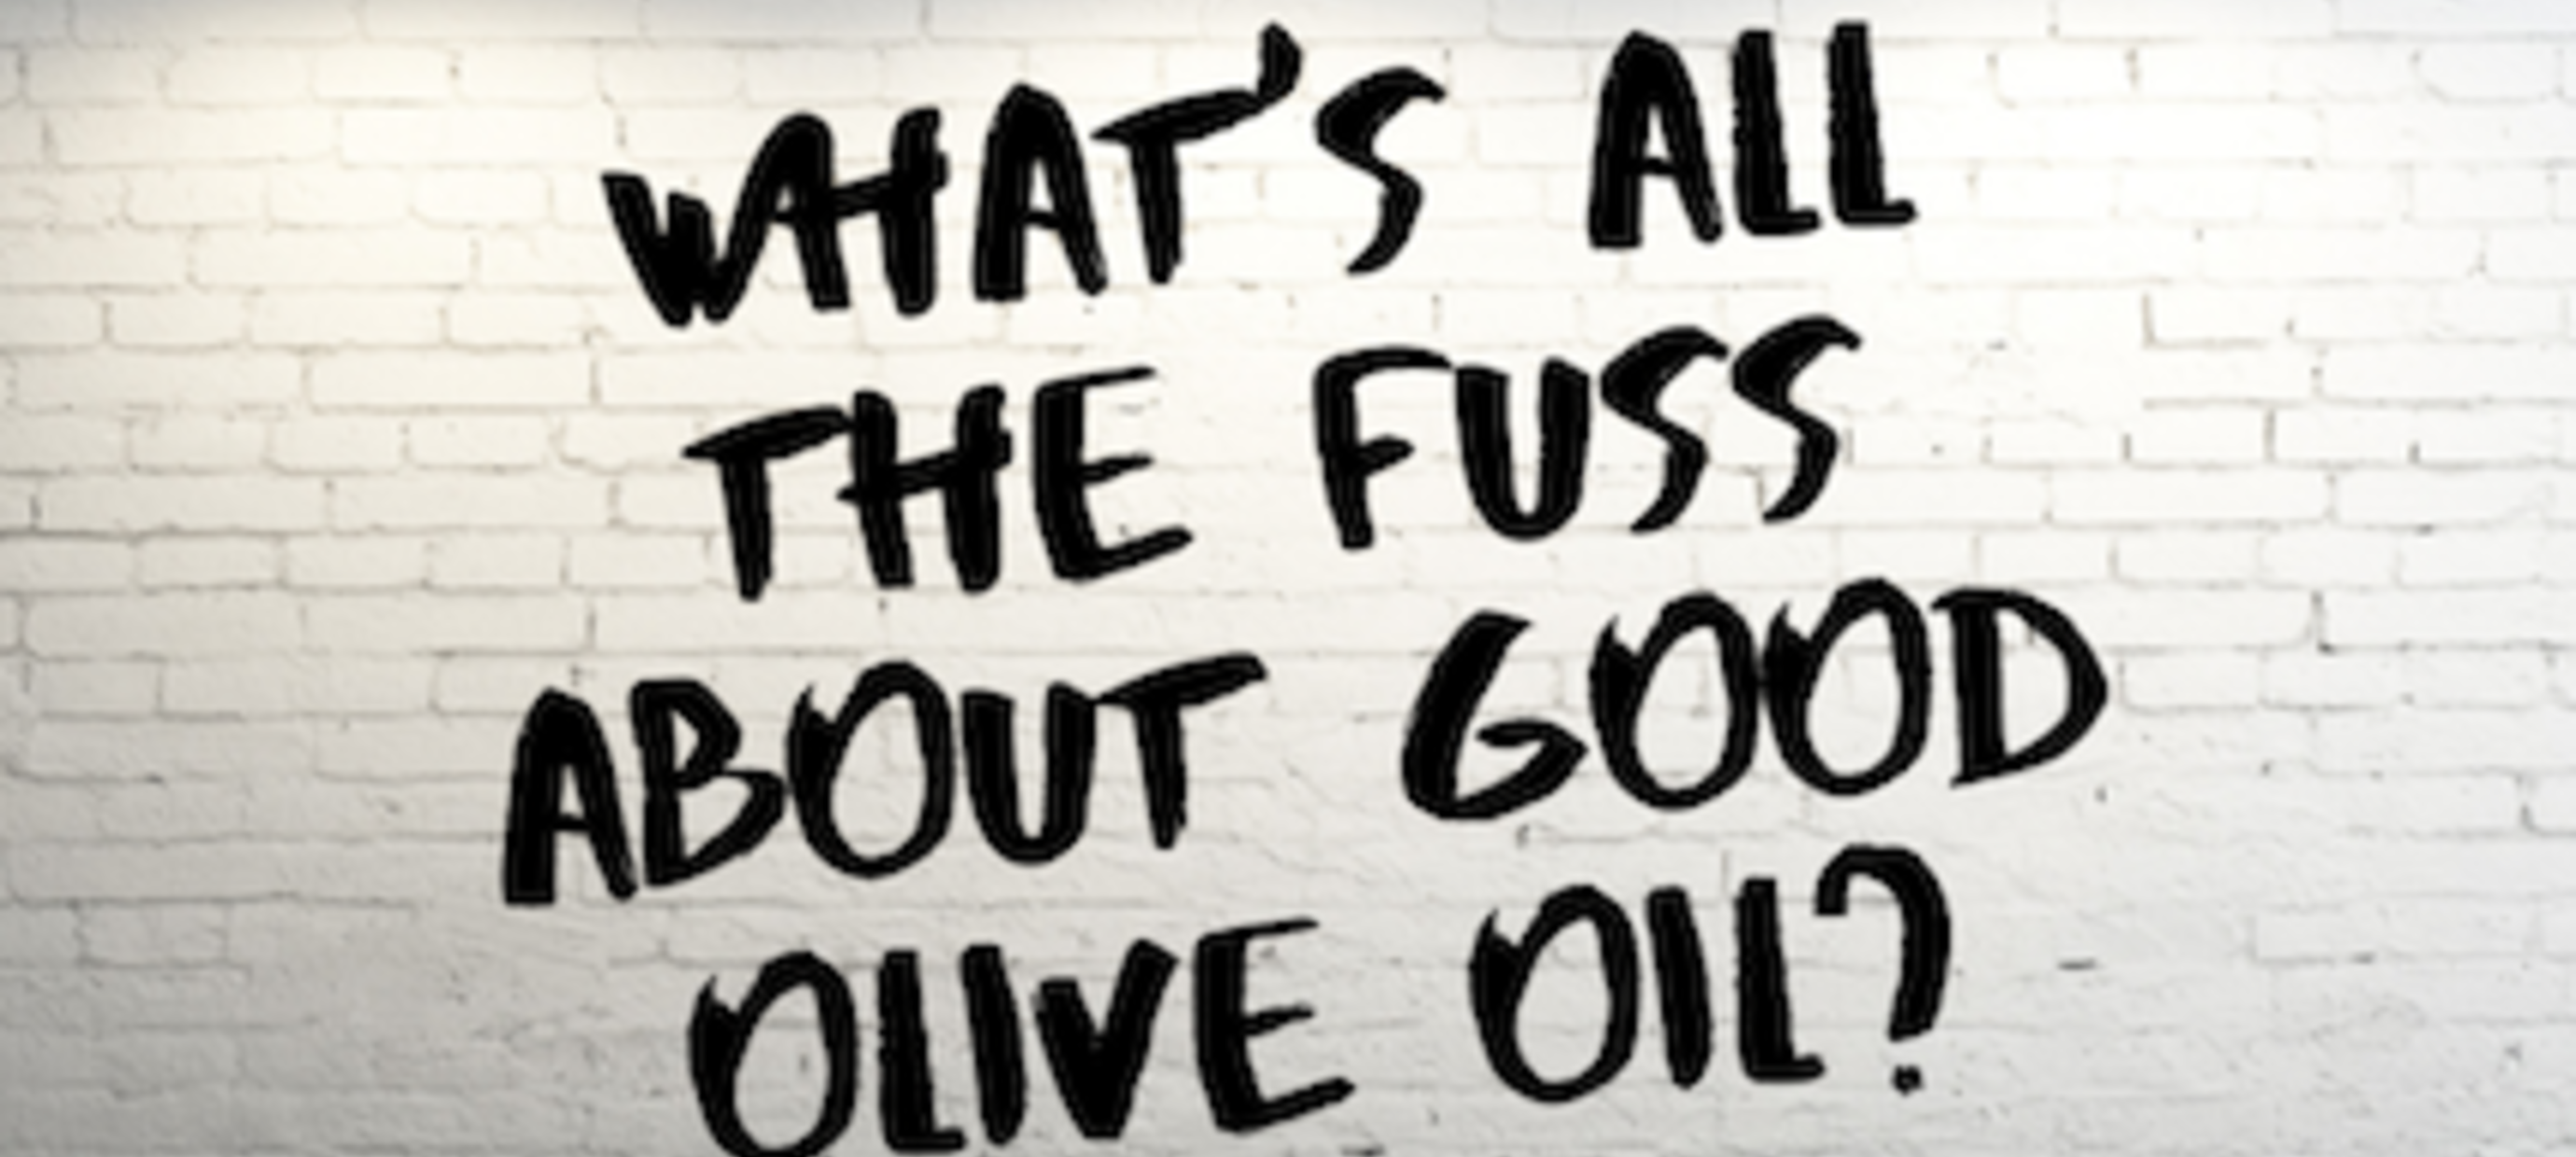 WHAT'S ALL
THE FUSS
ABOUT GOOD
OLIVE OIL?